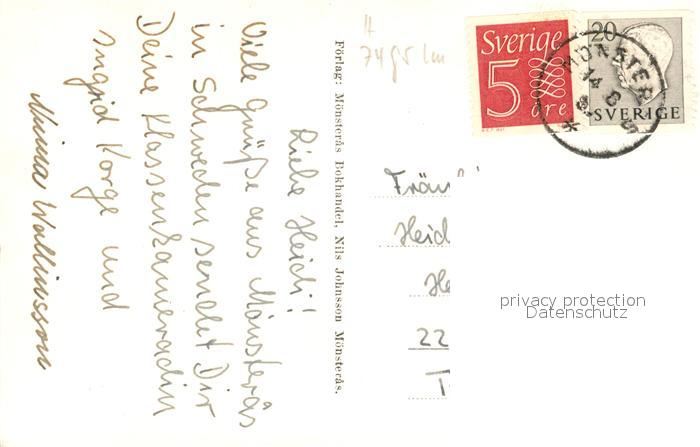 Liebe Heidi!
Viele Grüße aus Mönsterås
in Schweden sendet Dir
Deine Klassenkameradin
Ingrid Korge und
Wallinsson
Förlag: Mönsterås Bokhandel, Nils Johnsson Mönsterås.
Sverige
5
öre
20
SVERIGE
MÖNSTER
Fräu
Heid
He
22
T
privacy protection
Datenschutz